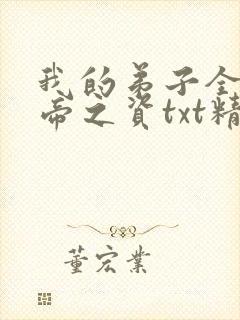 我的弟子全
帝之资txt精
董宏业